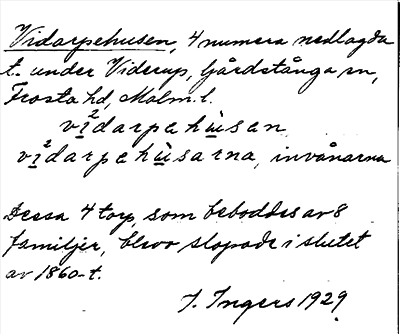 Vidarpehusen, 4 numera nedlagda
t. under Viderup, Gårdstånga sn,
Frosta hd, Malm. l.
vi̲²darpahùsan
vi̲²darpahùsarna, invånarna
Dessa 4 torp, som beboddes av 8
familjer, blevo slopade i slutet
av 1860-t.
I. Ingers 1929.